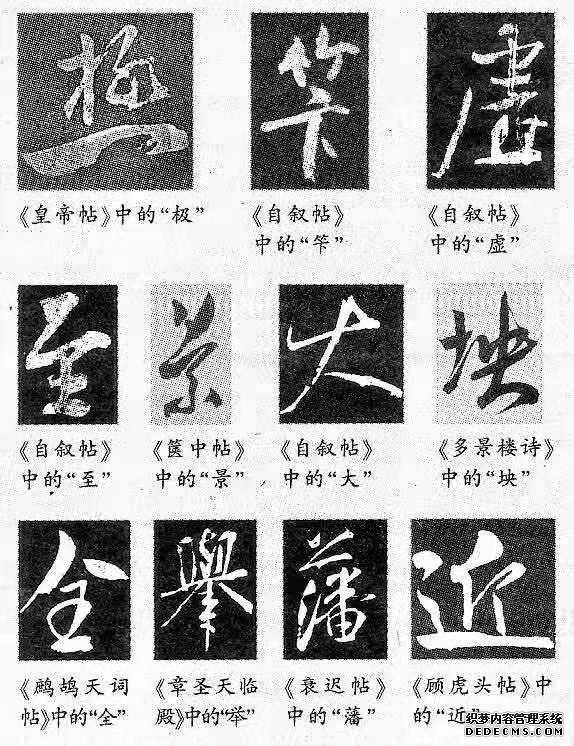 極
虚
《皇帝帖》中的“极”
《自叙帖》
中的“”
《自叙帖》
中的“虚”
至
景
大
坱
《自叙帖》
中的“至”
《箧中帖》
中的“景”
《自叙帖》
中的“大”
《多景楼诗》
中的“坱”
全
舉
藩
近
《鹧鸪天词
帖》中的“全”
《章圣天临
殿》中的“举”
《衰迟帖》
中的“藩”
《顾虎头帖》中
的“近”
织梦内容管理系统
DEDECMS.COM